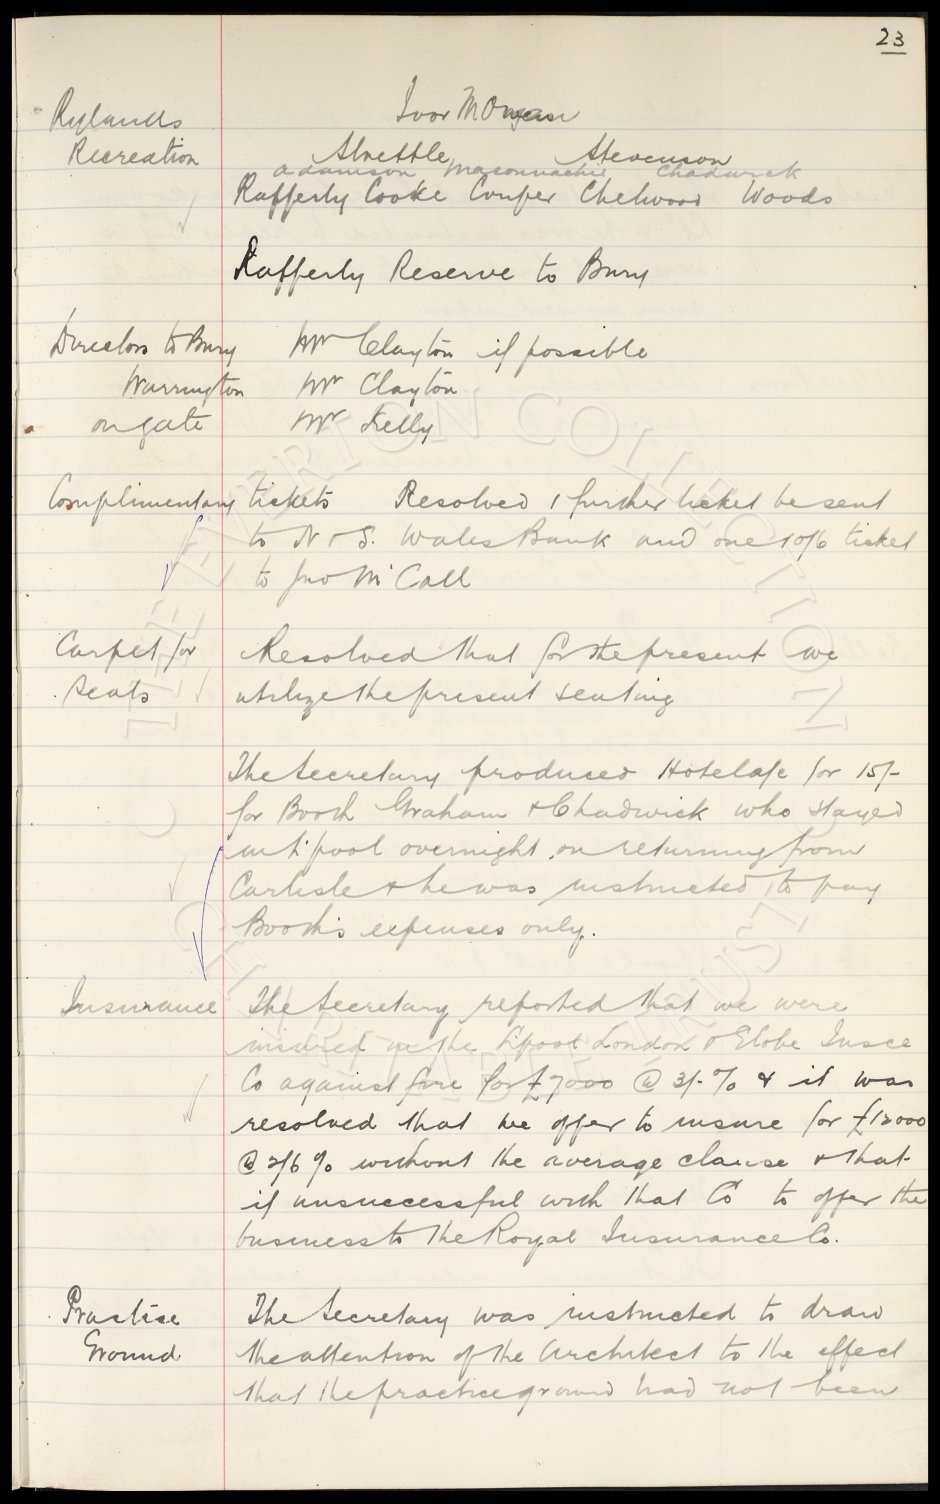 23
Rylands
Recreation
Ivor M Owen
Strettle Stevenson
Adamson Maconnachie Chadwick
Rafferty Cooke Couper Chelwood Woods
Rafferty Reserve to Bury
Directors to Bury Mr Clayton if possible
Warrington Mr Clayton
on gate Mr Kelly
Complimentary tickets Resolved 1 further ticket be sent
to N & S. Wales Bank and one 10/6 ticket
to Jno McCall
Carpet for Resolved that for the present we
Seats utilize the present seating
The Secretary produced Hotel a/c for 15/-
for Booth Graham & Chadwick who stayed
in L'pool overnight on returning from
Carlisle & he was instructed to pay
Booth's expenses only.
Insurance The Secretary reported that we were
insured in the L'pool London & Globe Insce
Co against fire for £7000 @ 3/- % & it was
resolved that we offer to insure for £12000
@ 2/6 % without the average clause & that
if unsuccessful with that Co to offer the
business to the Royal Insurance Co.
Practice The Secretary was instructed to draw
Ground the attention of the Architect to the effect
that the practice ground had not been
THE EVERTON COLLECTION
CHARITABLE TRUST
©